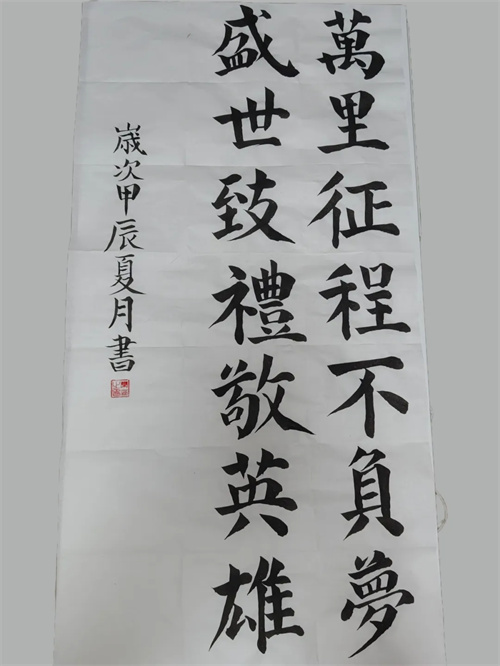 萬里征程不負夢
盛世致禮敬英雄
歲次甲辰夏月書